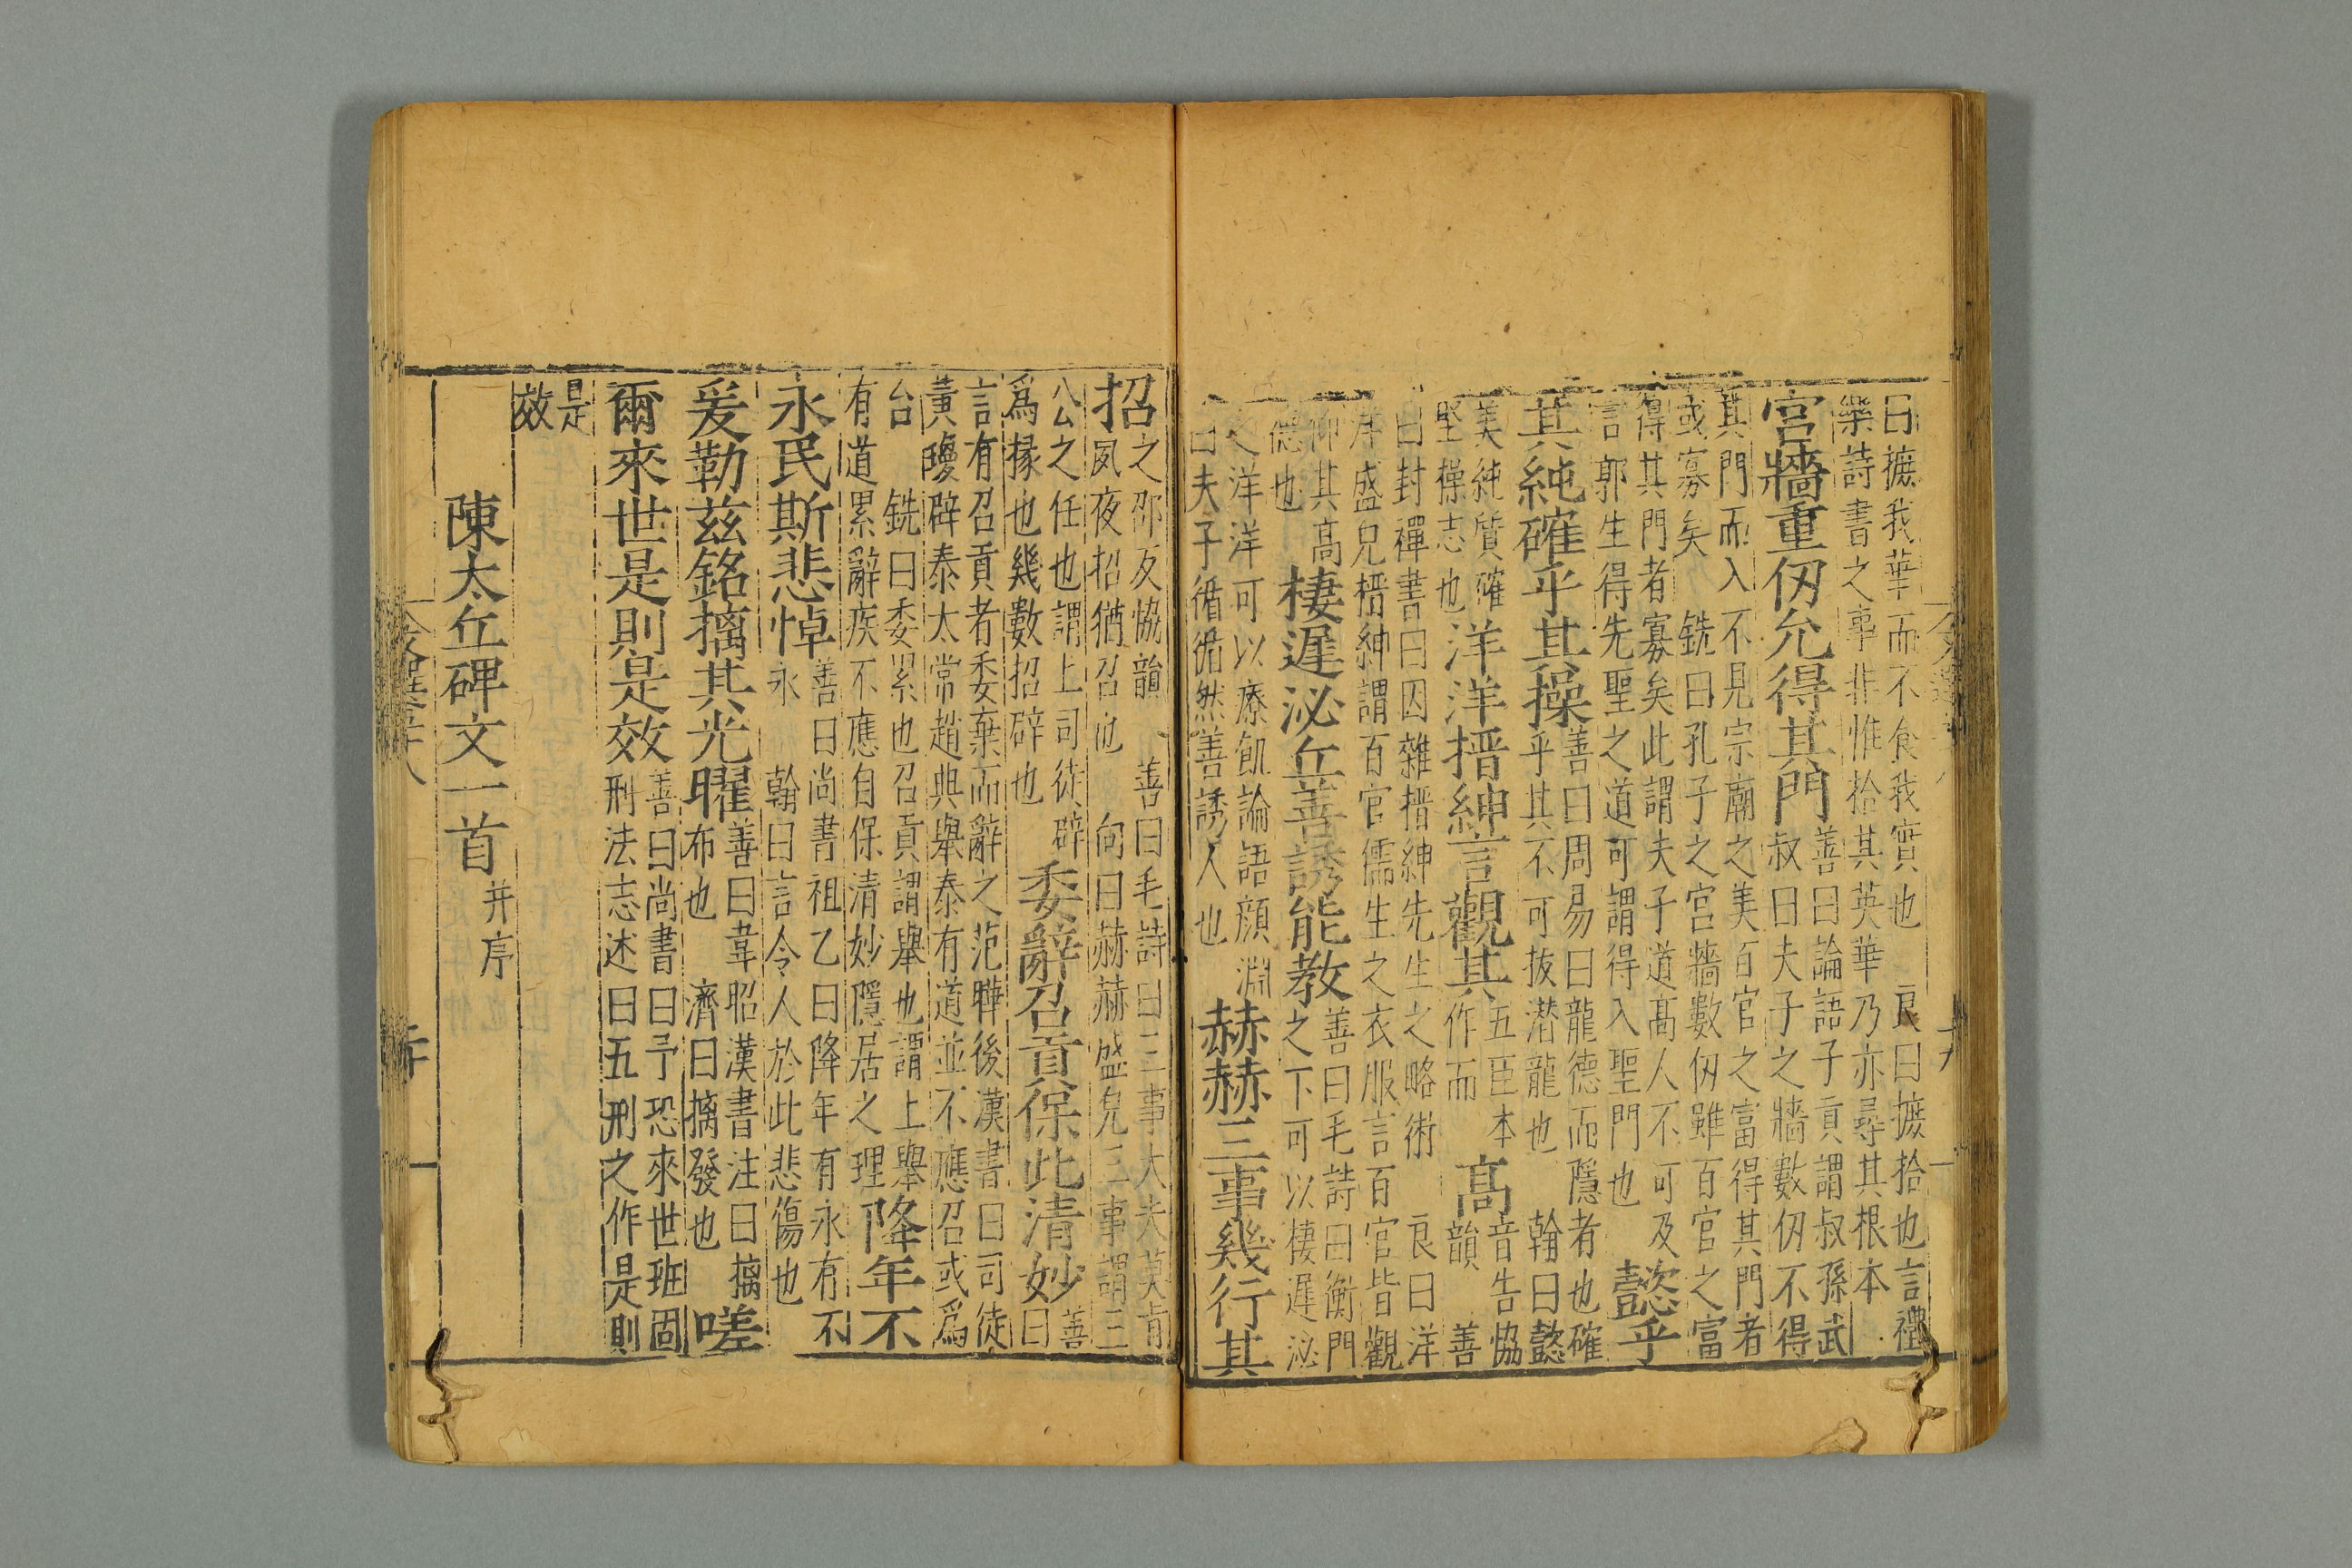 曰摭我華而不食我實也　良曰摭拾也言禮
樂詩書之事非惟拾其英華乃亦尋其根本
宮牆重仞允得其門善曰論語子貢謂叔孫武
叔曰夫子之牆數仞不得
其門而入不見宗廟之美百官之富得其門者
或寡矣　銑曰孔子之宮牆數仞雖百官之富
得其門者寡矣此謂夫子道高人不可及
言郭生得先聖之道可謂得入聖門也懿乎
其純確乎其操善曰周易曰龍德而隱者也確
乎其不可拔潛龍也　翰曰懿
美純質確
堅操志也洋洋搢紳言觀其五臣本
作而高音告協
韻　善
曰封禪書曰因雜搢紳先生之略術　良曰洋
洋盛皃搢紳謂百官儒生之衣服言百官皆觀
仰其高
德也棲遲泌丘善誘能教善曰毛詩曰衡門
之下可以棲遲泌
之洋洋可以療飢論語顔淵
曰夫子循循然善誘人也赫赫三事幾行其
招之邵反協韻　善曰毛詩曰三事大夫莫肯
夙夜招猶召也　向曰赫赫盛皃三事謂三
公之任也謂上司徒辟
爲掾也幾數招辟也委辭召貢保此清妙善
曰
言有召貢者委棄而辭之范曄後漢書曰司徒
黃瓊辟泰太常趙典舉泰有道並不應召或爲
台　銑曰委累也召貢謂舉也謂上舉
有道累辭疾不應自保清妙隱居之理降年不
永民斯悲悼善曰尚書祖乙曰降年有永有不
永　翰曰言令人於此悲傷也
爰勒茲銘摛其光曜善曰韋昭漢書注曰摛
布也　濟曰摛發也嗟
爾來世是則是效善曰尚書曰予恐來世班固
刑法志述曰五刑之作是則
是
效
陳太丘碑文一首并序